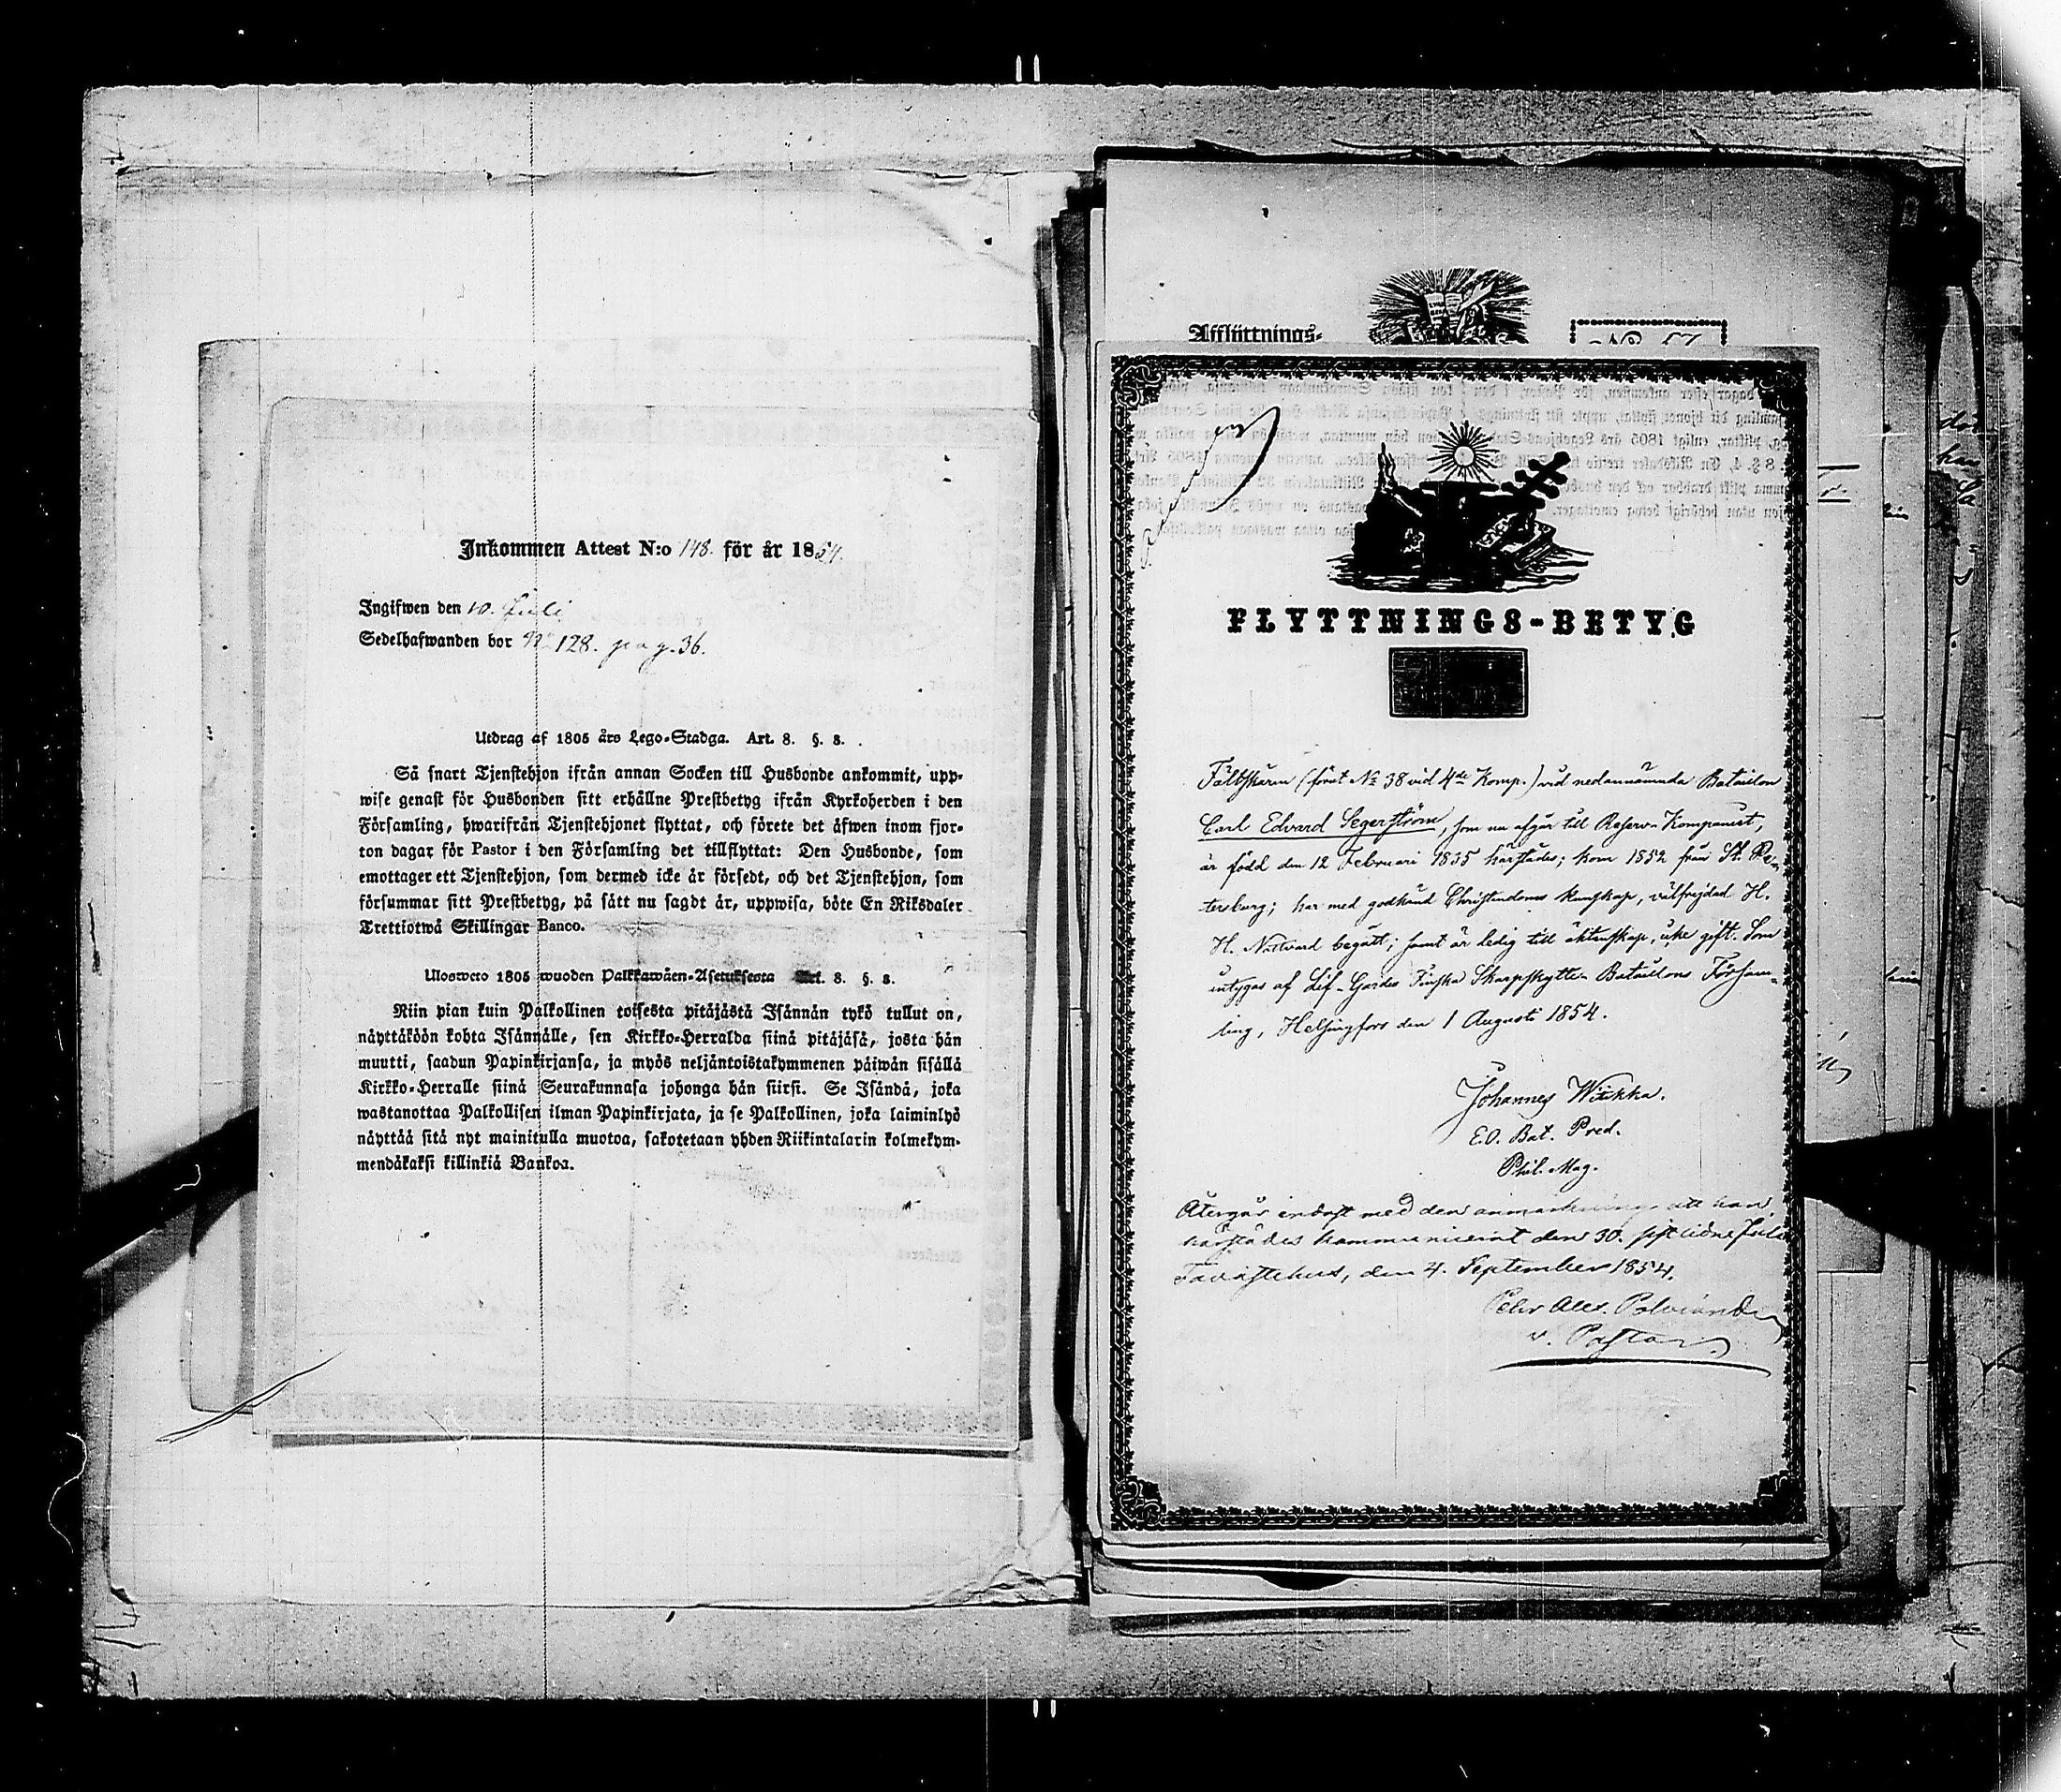 Inkommen Attest N:o 148. för år 1854.
Ingifwen den 10. Juli
Sedelhafwanden bor No 128. pag. 36.
Utdrag af 1805 års Lego-Stadga. Art. 8. §. 8.
Så snart Tjenstehjon ifrån annan Socken till Husbonde ankommit, upp-
wise genast för Husbonden sitt erhållne Prestbetyg ifrån Kyrkoherden i den
Församling, hwarifrån Tjenstehjonet flyttat, och förete det äfwen inom fjor-
ton dagar för Pastor i den Församling det tillflyttat: Den Husbonde, som
emottager ett Tjenstehjon, som dermed icke är försedt, och det Tjenstehjon, som
försummar sitt Prestbetyg, på sätt nu sagdt är, uppwisa, böte En Riksdaler
Trettiotwå Skillingar Banco.
Ulosweto 1805 wuoden Palkkawäen-Asetuksesta Art. 8. §. 8.
Niin pian kuin Palkollinen toisesta pitäjästä Isännän tykö tullut on,
näyttäköön kohta Isännälle, sen Kirkko-Herralda siinä pitäjäsä, josta hän
muutti, saadun Papinkirjansa, ja myös neljäntoistakymmenen päiwän sisällä
Kirkko-Herralle siinä Seurakunnasa johonga hän siirsi. Se Isändä, joka
wastanottaa Palkollisen ilman Papinkirjata, ja se Palkollinen, joka laiminlyö
näyttää sitä nyt mainitulla muotoa, sakotetaan yhden Riikintalarin kolmekym-
mendäkaksi killinkiä Bankoa.
Afflyttnings-
No 57
FLYTTNINGS-BETYG
Fältskärn (förut No 38 vid 4de Komp.) vid nedannämnda Bataillon
Carl Edvard Segerström, som nu afgår till Reserv-Kompaniet,
är född den 12 Februari 1835 härstädes; kom 1852 från St. Pe-
tersburg; har med godkänd Christendoms kunskap, välfrejdad H.
H. Nattvard begått; samt är ledig till äktenskap, icke gift. Som
intygas af Lif-Gardes Finska Skarpskytte-Bataillons Försam-
ling, Helsingfors den 1 Augusti 1854.
Johannes Wiikka.
E.O. Bat. Pred.
Phil. Mag.
Återgår endast med den anmärkning, att han
härstädes kommunicerat den 30. sistlidne Juli
Tavastehus, den 4. September 1854.
Pehr Alex.
v. Pastor.